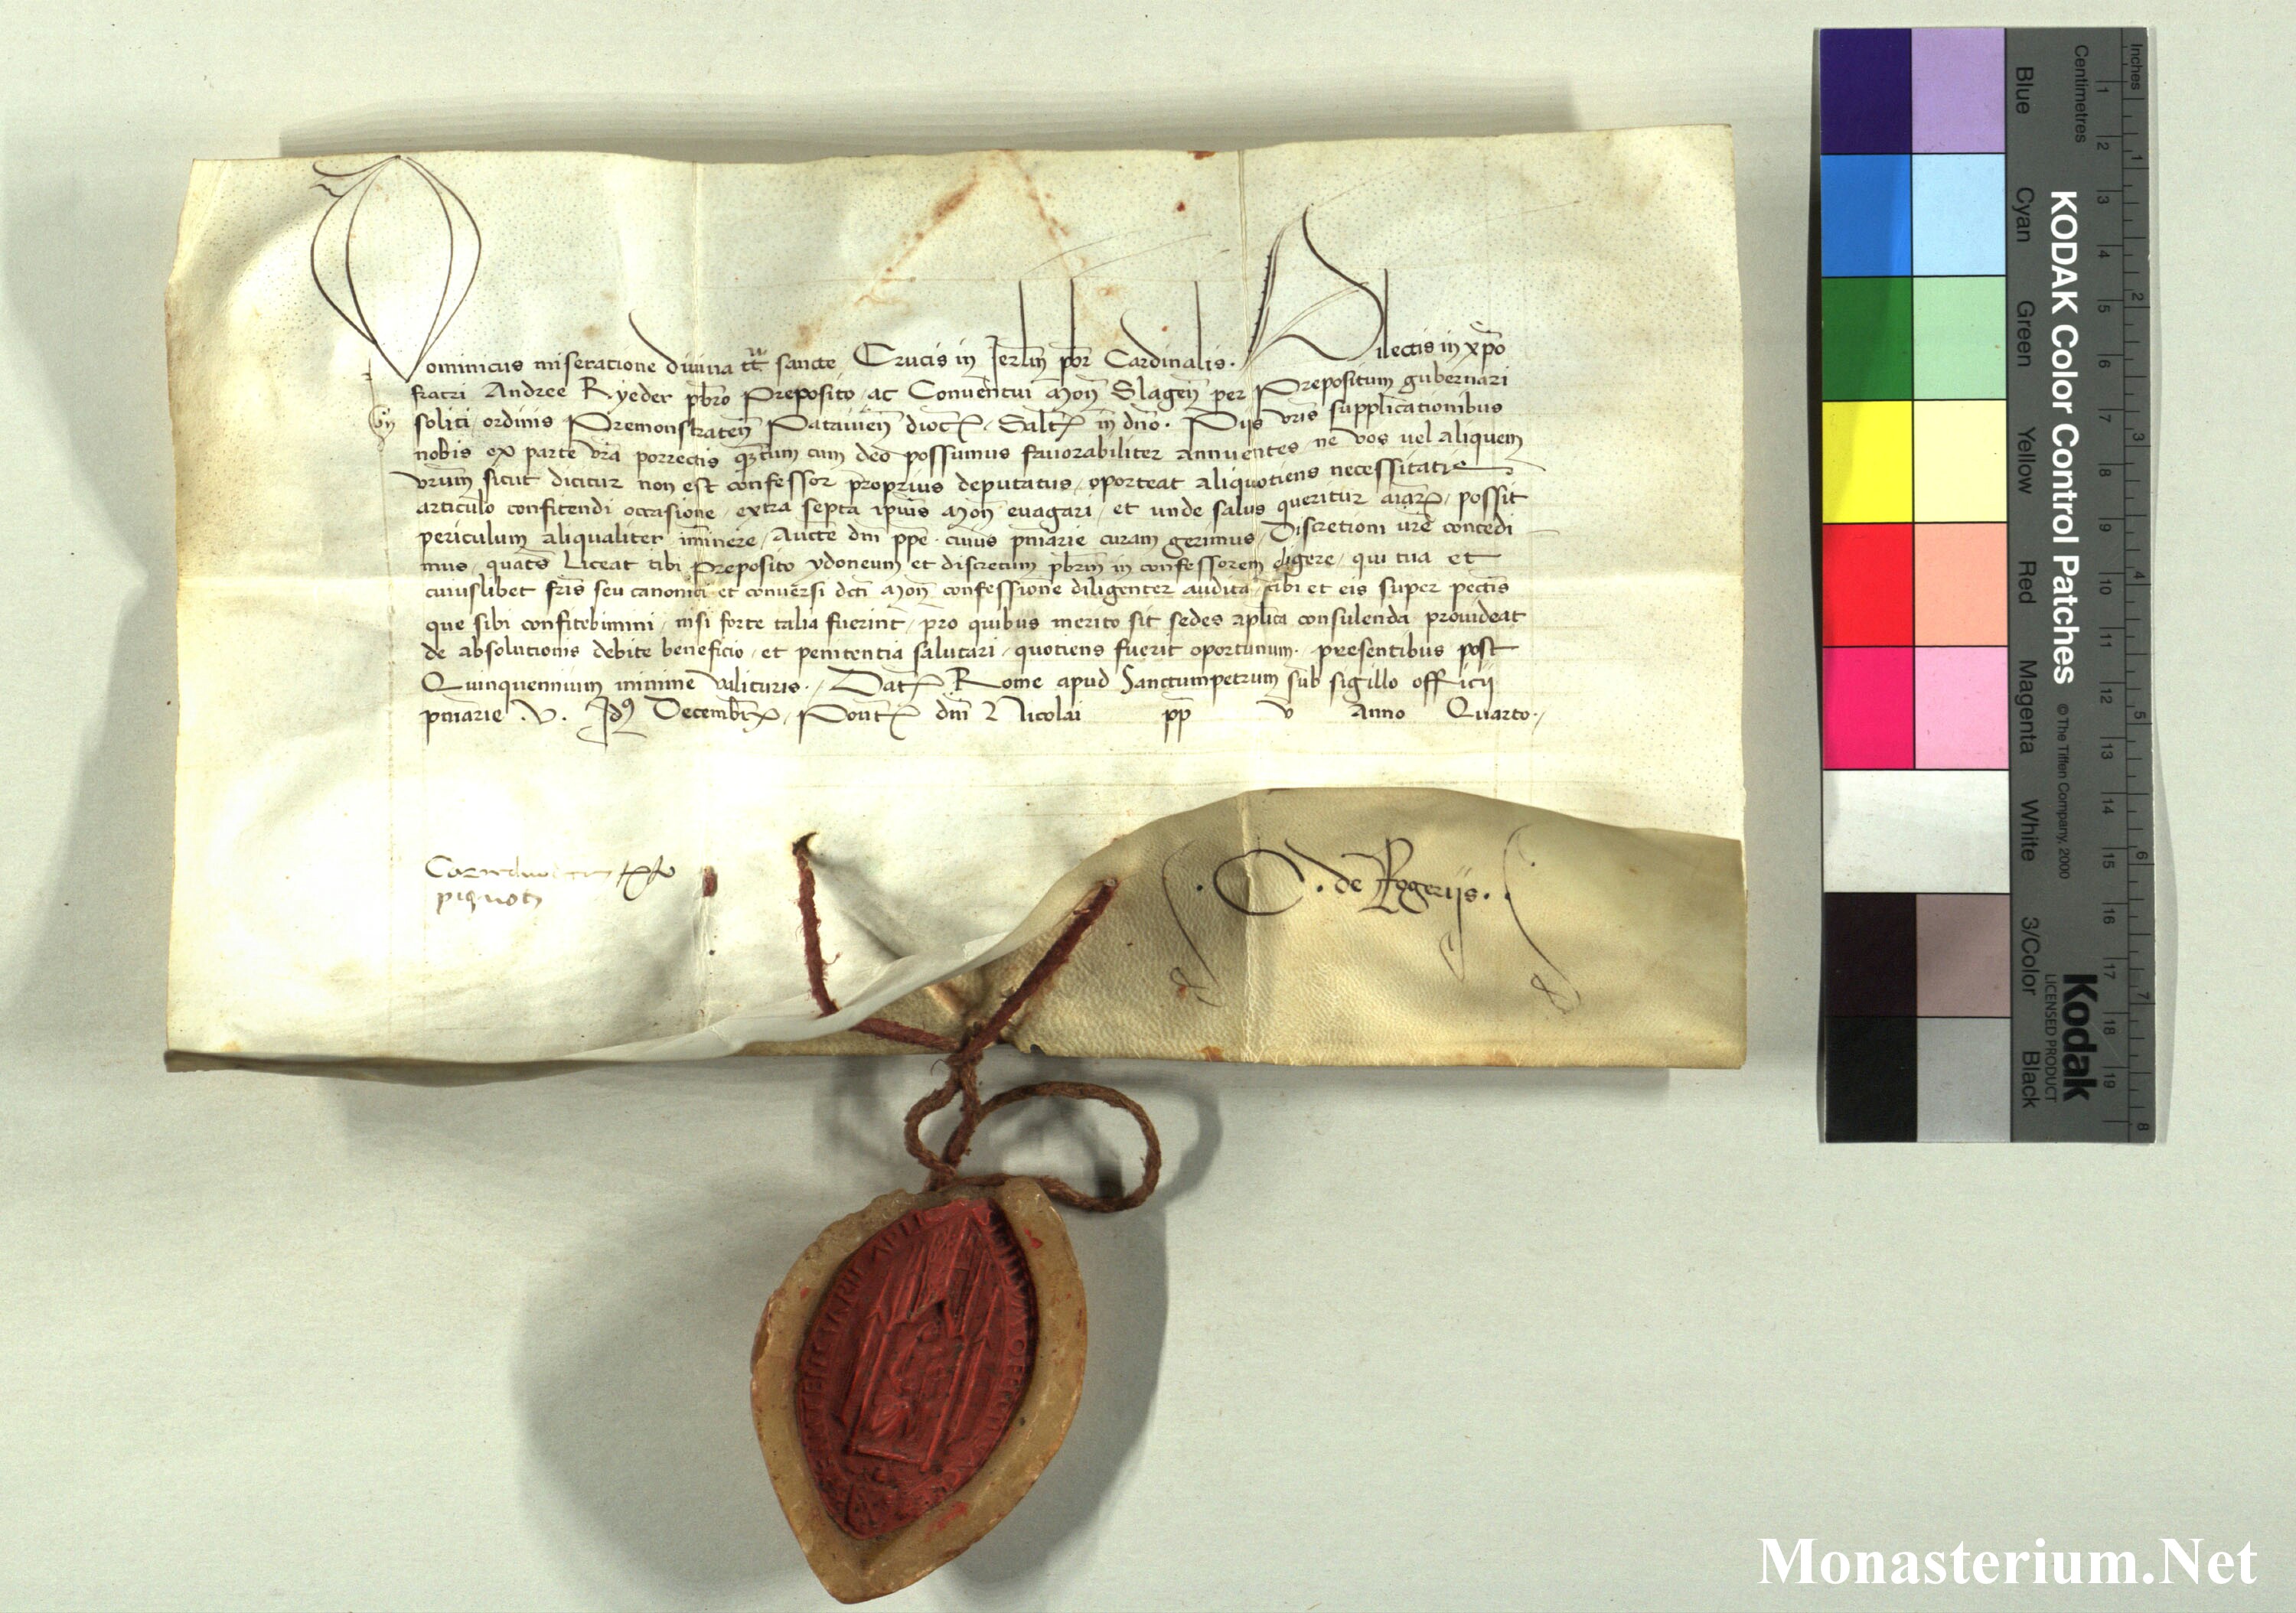 Dominicus miseratione divina tt̃. sancte Crucis in Jerlm̃ pb̃r Cardinalis. Dilectis in xpõ
fratri Andree Ryeder pb̃ro Preposito, ac Conventui Moñ Slageñ per Prepositum gubernari
soliti, ordinis Premonstrateñ Patavieñ dioc̃. Salt̃ in dño. Piis vr̃is supplicationibus
nobis ex parte vr̃a porrectis qz̃tum cum deo possumus favorabiliter annuentes, ne vos vel aliquem
vr̃um sicut dicitur non est confessor proprius deputatus, oporteat aliquotiens necessitatis
articulo confitendi occasione, extra septa ip̃ius Moñ evagari, et unde salus queritur aĩarꝝ, possit
periculum aliqualiter im̃inere, Aucte dñi ppẽ. cuius pñiarie curam gerimus, Discretioni vr̃e concedi
mus, quatẽs Liceat tibi Preposito ydoneum et discretum pb̃rm in confessorem eligere, qui tua et
cuiuslibet fr̃is seu canonici et conversi dc̃ti Moñ confessione diligenter audita, tibi et eis super pect̃is
que sibi confitebimini, nisi forte talia fuerint, pro quibus merito sit sedes apl̃ica consulenda provideat
de absolutionis debite beneficio, et penitentia salutari, quotiens fuerit oportunum. presentibus post
Quinquennium minime valituris. Dat̃. Rome apud Sanctumpetrum sub sigillo officii
pñiarie .v. Idꝰ Decembrꝭ, Pont̃. dñi Nicolai pp v Anno Quarto.
.C. de Rogeriis.
KODAK Color Control Patches
© The Tiffen Company, 2000
Kodak
LICENSED PRODUCT
Inches 1 2 3 4 5 6 7 8
Centimetres 1 2 3 4 5 6 7 8 9 10 11 12 13 14 15 16 17 18 19
Blue Cyan Green Yellow Red Magenta White 3/Color Black
Monasterium.Net